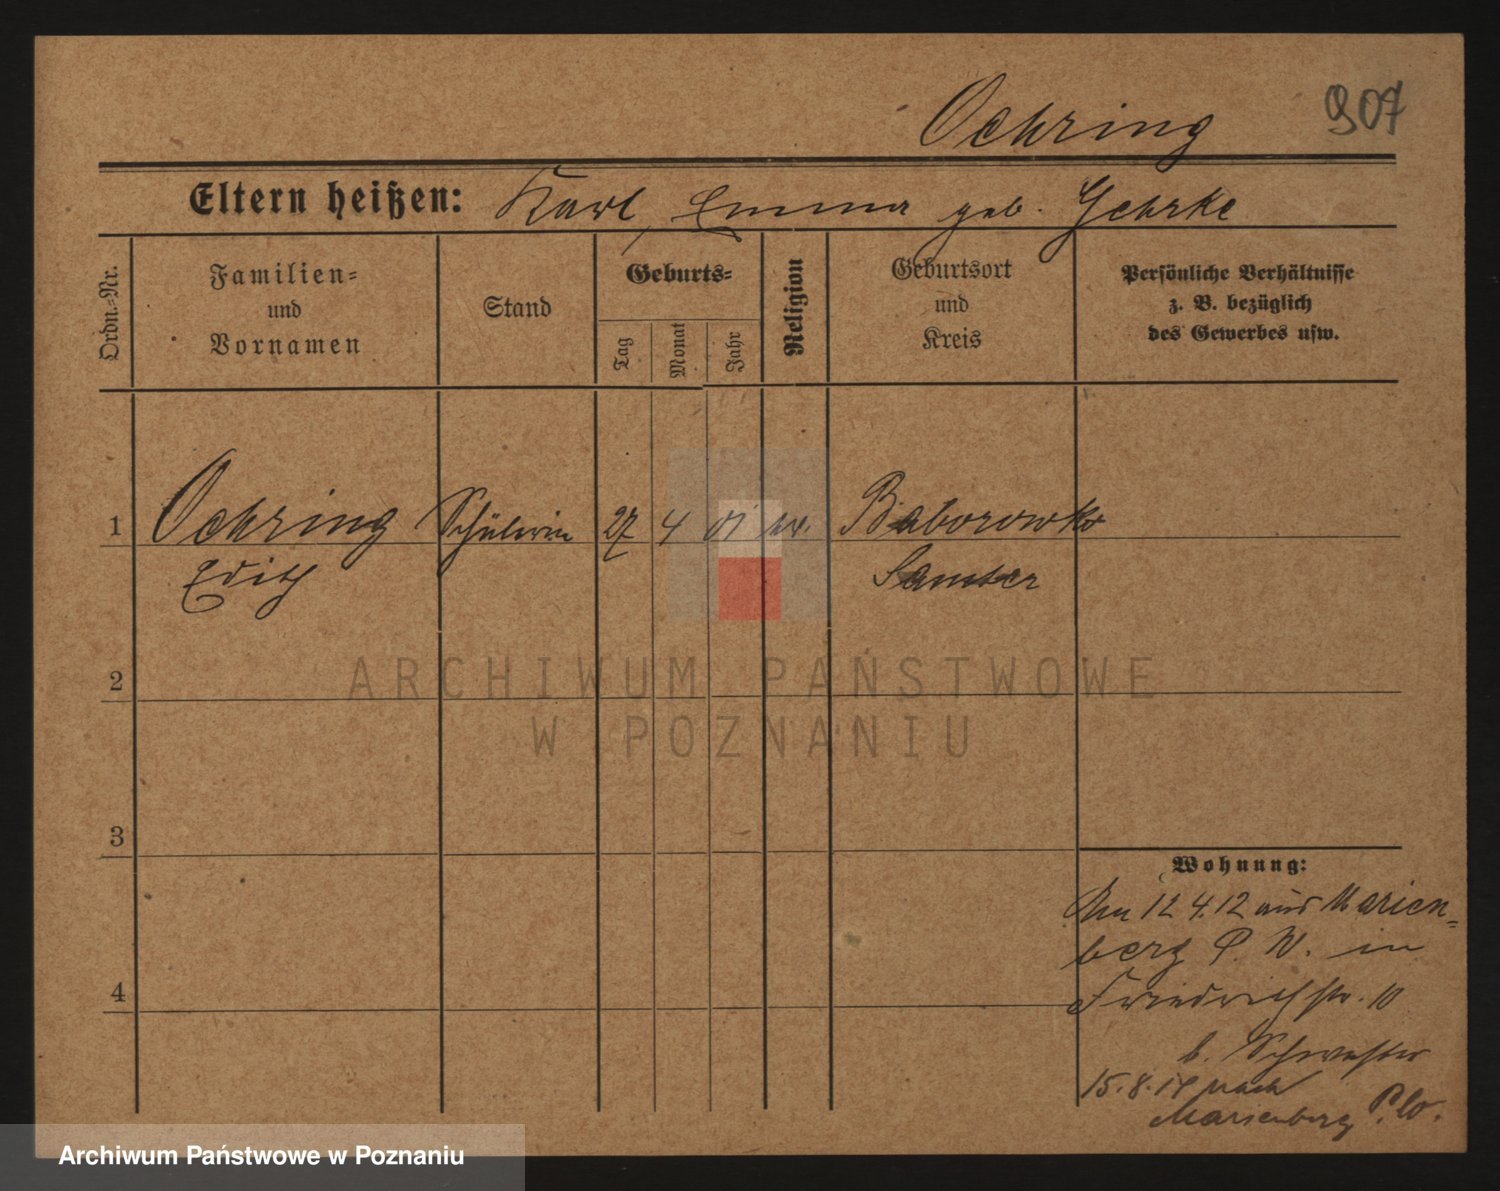 Oehring 907
Eltern heißen: Karl, Emma geb. Gehrke
Ordn.-Nr.
Familien-
und
Vornamen
Stand
Geburts-
Tag
Monat
Jahr
Religion
Geburtsort
und
Kreis
Persönliche Verhältnisse
z. B. bezüglich
des Gewerbes usw.
1 Oehring Schülerin 27 4 01 ev. Baborowko
Edith Samter
2
3
4
Wohnung:
Am 12 4.12 aus Marien-
berg P. W. in
Friedrichstr. 10
b. Schwester
15.8.14 nach
Marienberg P.W.
ARCHIWUM PAŃSTWOWE
W POZNANIU
Archiwum Państwowe w Poznaniu